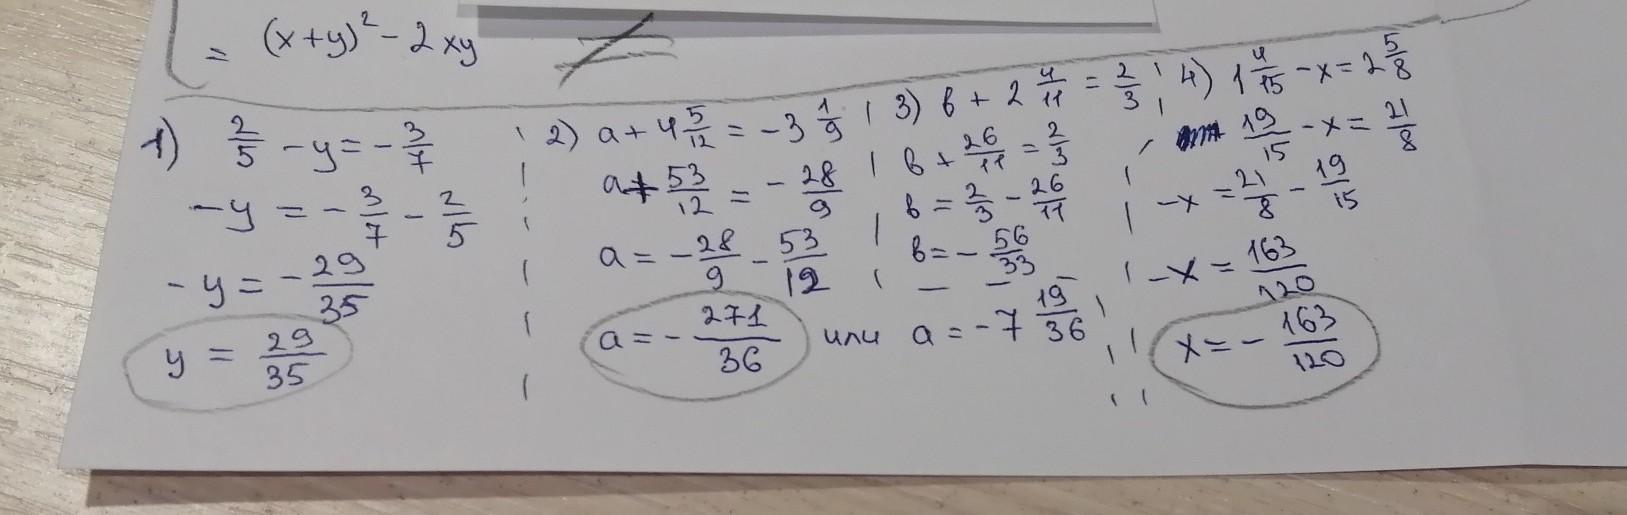 = (x+y)² - 2xy
1) 2/5 - y = - 3/7
- y = - 3/7 - 2/5
- y = - 29/35
y = 29/35
2) a + 4 5/12 = - 3 1/9
a + 53/12 = - 28/9
a = - 28/9 - 53/12
a = - 271/36 или a = - 7 19/36
3) в + 2 4/11 = 2/3
в + 26/11 = 2/3
в = 2/3 - 26/11
в = - 56/33
4) 1 4/15 - x = 2 5/8
19/15 - x = 21/8
- x = 21/8 - 19/15
- x = 163/120
x = - 163/120